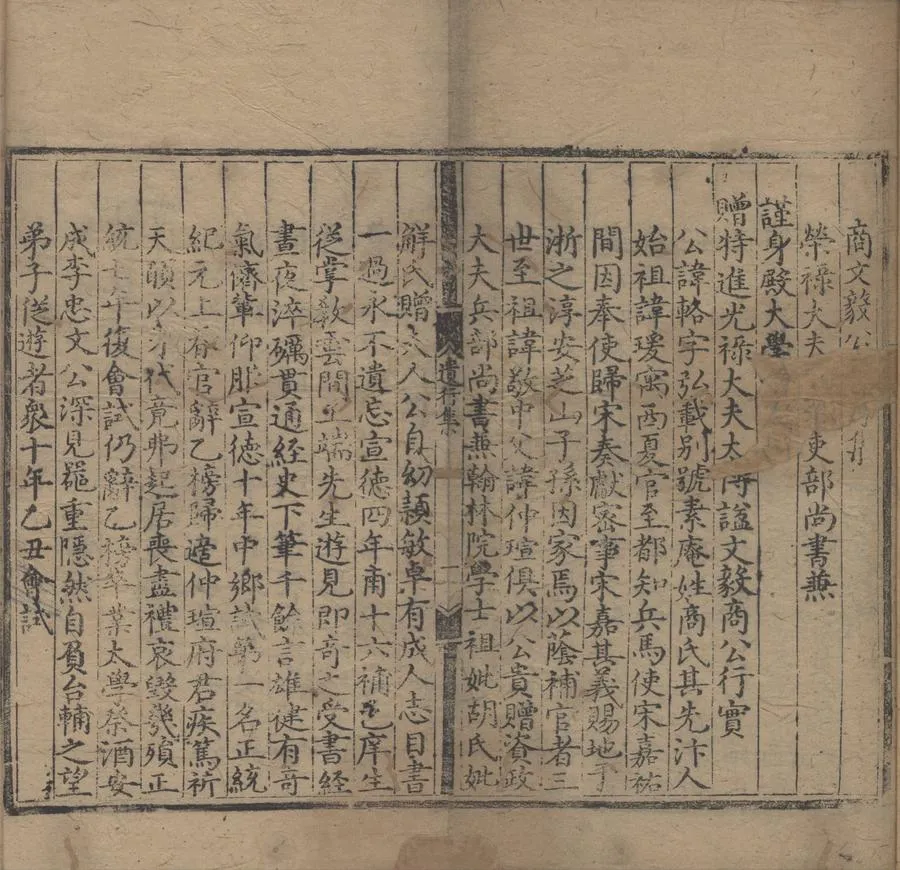 商文毅公
榮祿大夫 吏部尚書兼
謹身殿大學
贈特進光祿大夫太傅謚文毅商公行實
公諱輅字弘載别號素庵姓商氏其先汴人
始祖諱瑗寓西夏官至都知兵馬使宋嘉祐
間因奉使歸宋奏獻密事宋嘉其義賜地于
浙之淳安芝山子孫因家焉以蔭補官者三
世至祖諱敬中父諱仲瑄俱以公貴贈資政
大夫兵部尚書兼翰林院學士祖妣胡氏妣
遺行集
一
解氏贈夫人公自幼穎敏卓有成人志目書
一過永不遺忘宣德四年甫十六補邑庠生
從掌教雲間王端先生遊見即奇之受書經
晝夜淬礪貫通經史下筆千餘言雄健有奇
氣儕輩仰服宣德十年中鄉試第一名正統
紀元上春官辭乙榜歸適仲瑄府君疾篤祈
天願以身代竟弗起居喪盡禮哀毀幾殞正
統七年復會試仍辭乙榜卒業太學祭酒安
成李忠文公深見器重隱然自負台輔之望
弟子從遊者衆十年乙丑會試